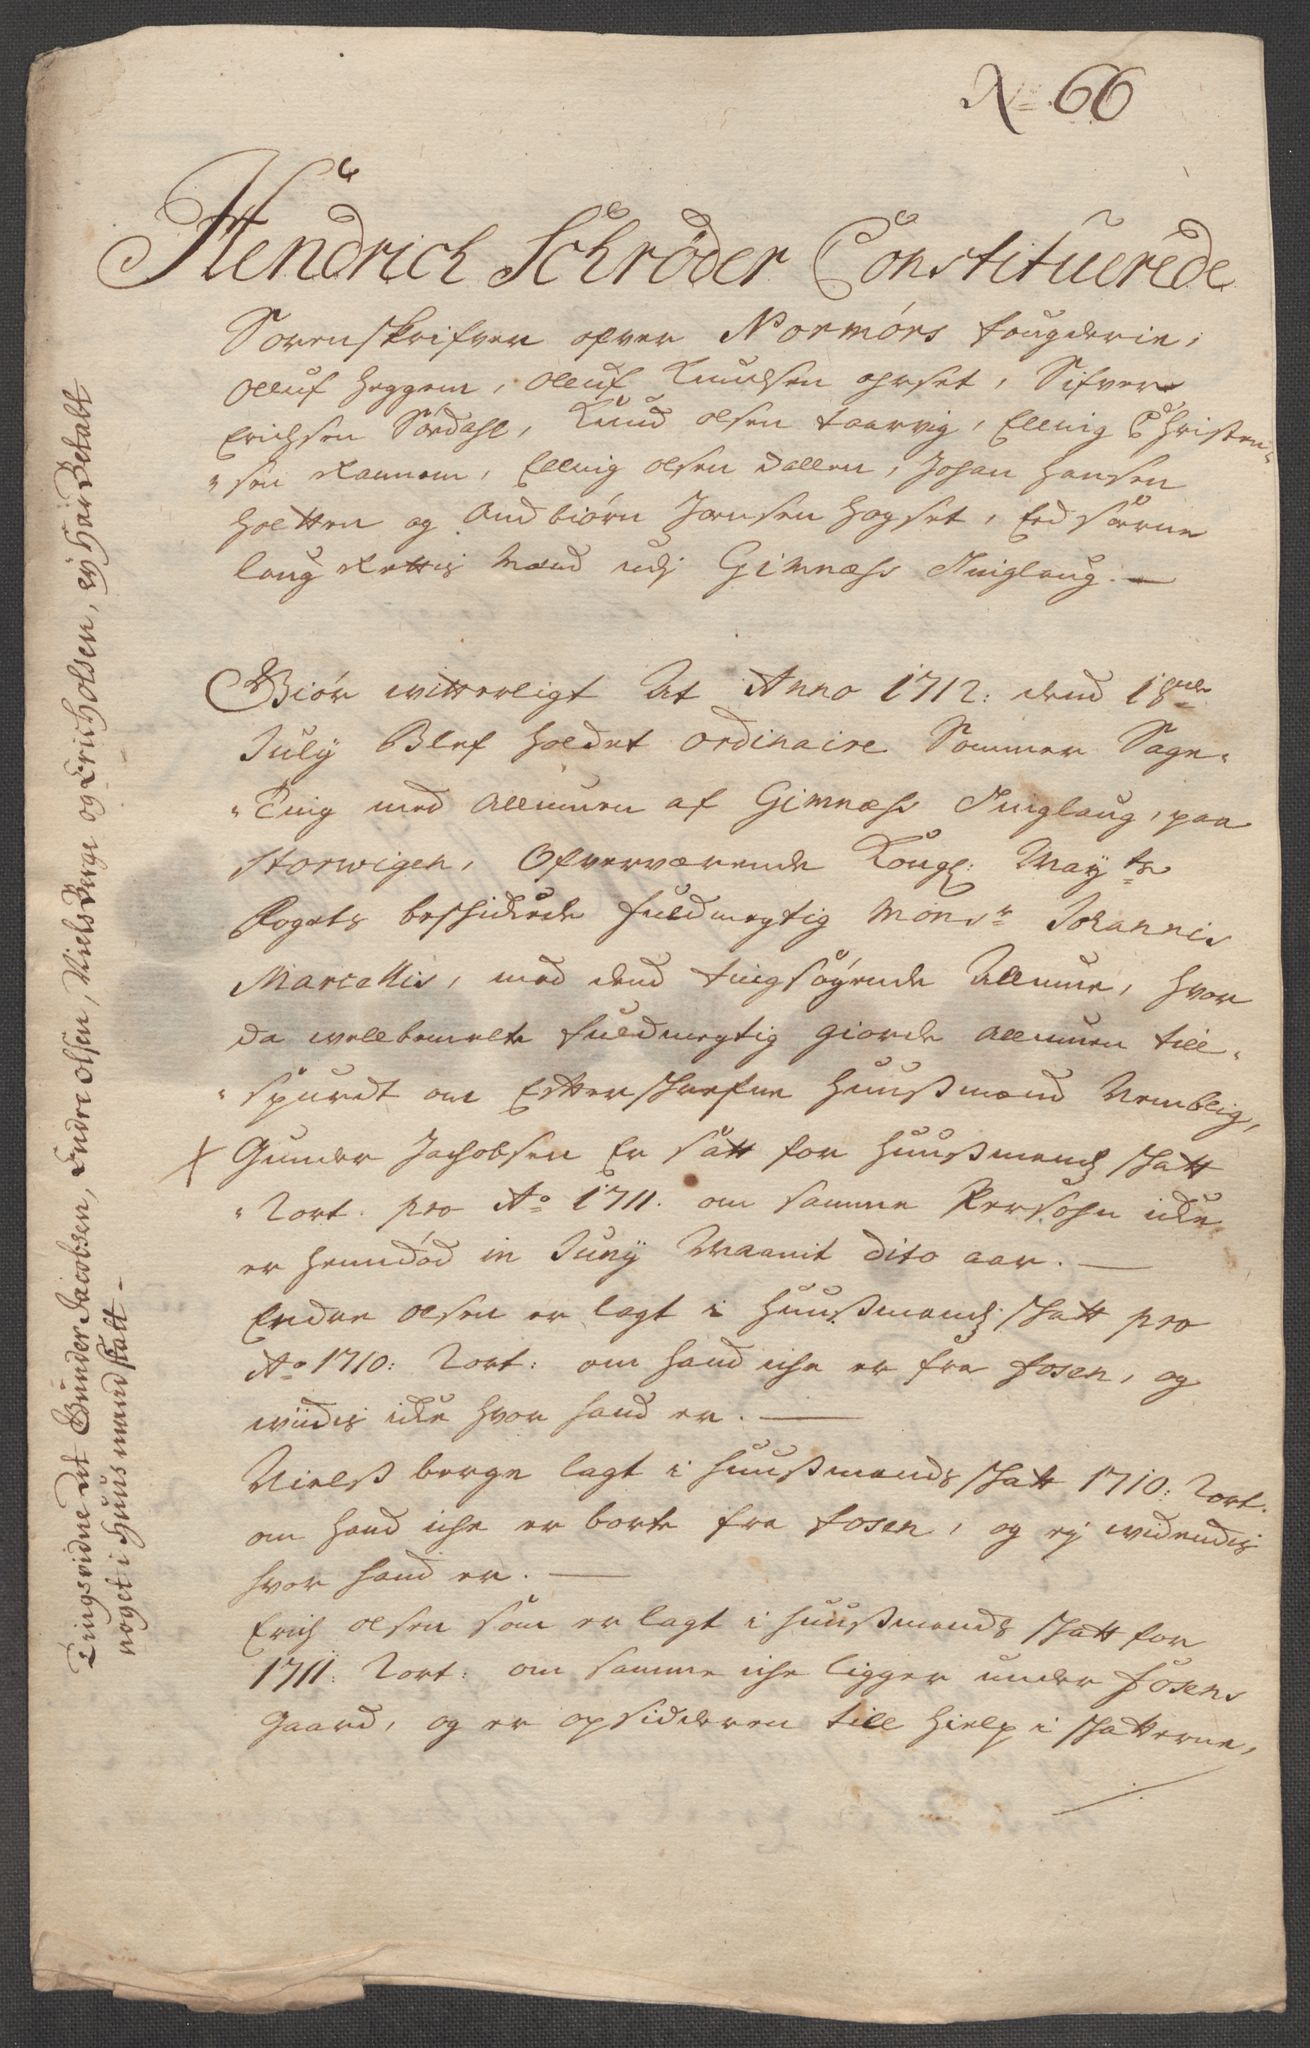 No 66
Hendrich Schrøder Constituerede
Sorenskrifver ofver Normørs fougderie,
Olluf Heggem, Olluf Knudsen Ohrset, Sifver
Erichsen Sørdahl, Knud Olsen Taarvig, Elling Christen-
-sen Rannem, Elling Olsen Dallen, Johan Hansen
Holtten og Andbiørn Jonsen Hogset, Eedsorne
laug Rettis Mænd udj Gimnæss Tinglaug. —
Giør vitterligt At Anno 1712: dend 18de
July Blef holdet ordinaire Sommer Sage-
-Ting med Allmuen af Gimnæss Tinglaug, paa
Storwigen, Ofverværende Kongl: Mayts
Fogets beschickede fuldmegtig Monsr Johannis
Marcellis, med dend tingsøgende Allmue, hvor
da wellbemelte fuldmegtig giorde Allmuen till-
-spurdt om Efterschrefne Huusmænd Nemblig,
Gunder Jachobsen Er satt for Huusmends schatt
1 ort. pro Ao 1711. om samme Persohn icke
er henndød in Juny Maanit dito aar. —
Endre Olsen er lagt i Huusmands schatt pro
Ao 1710: 1 ort: om hand iche er fra Fosen, og
wiidis icke hvor hand er. —
Nielss berge lagt i huusmends schatt 1710: 1 ort.
om hand iche er borte fra Fosen, og ej widendis
hvor hand er. —
Erich Olsen som er lagt i huusmends schatt for
1711: 1 ort: om samme iche ligger under Fosens
Gaard, og er opsidderen till hielp i schatterne,
Tingsvidne at Gunder Jacobsen, Endre Olsen, Niels Berge og Erich Olsen, ey har Betalt
noget i Huusmand skatt –